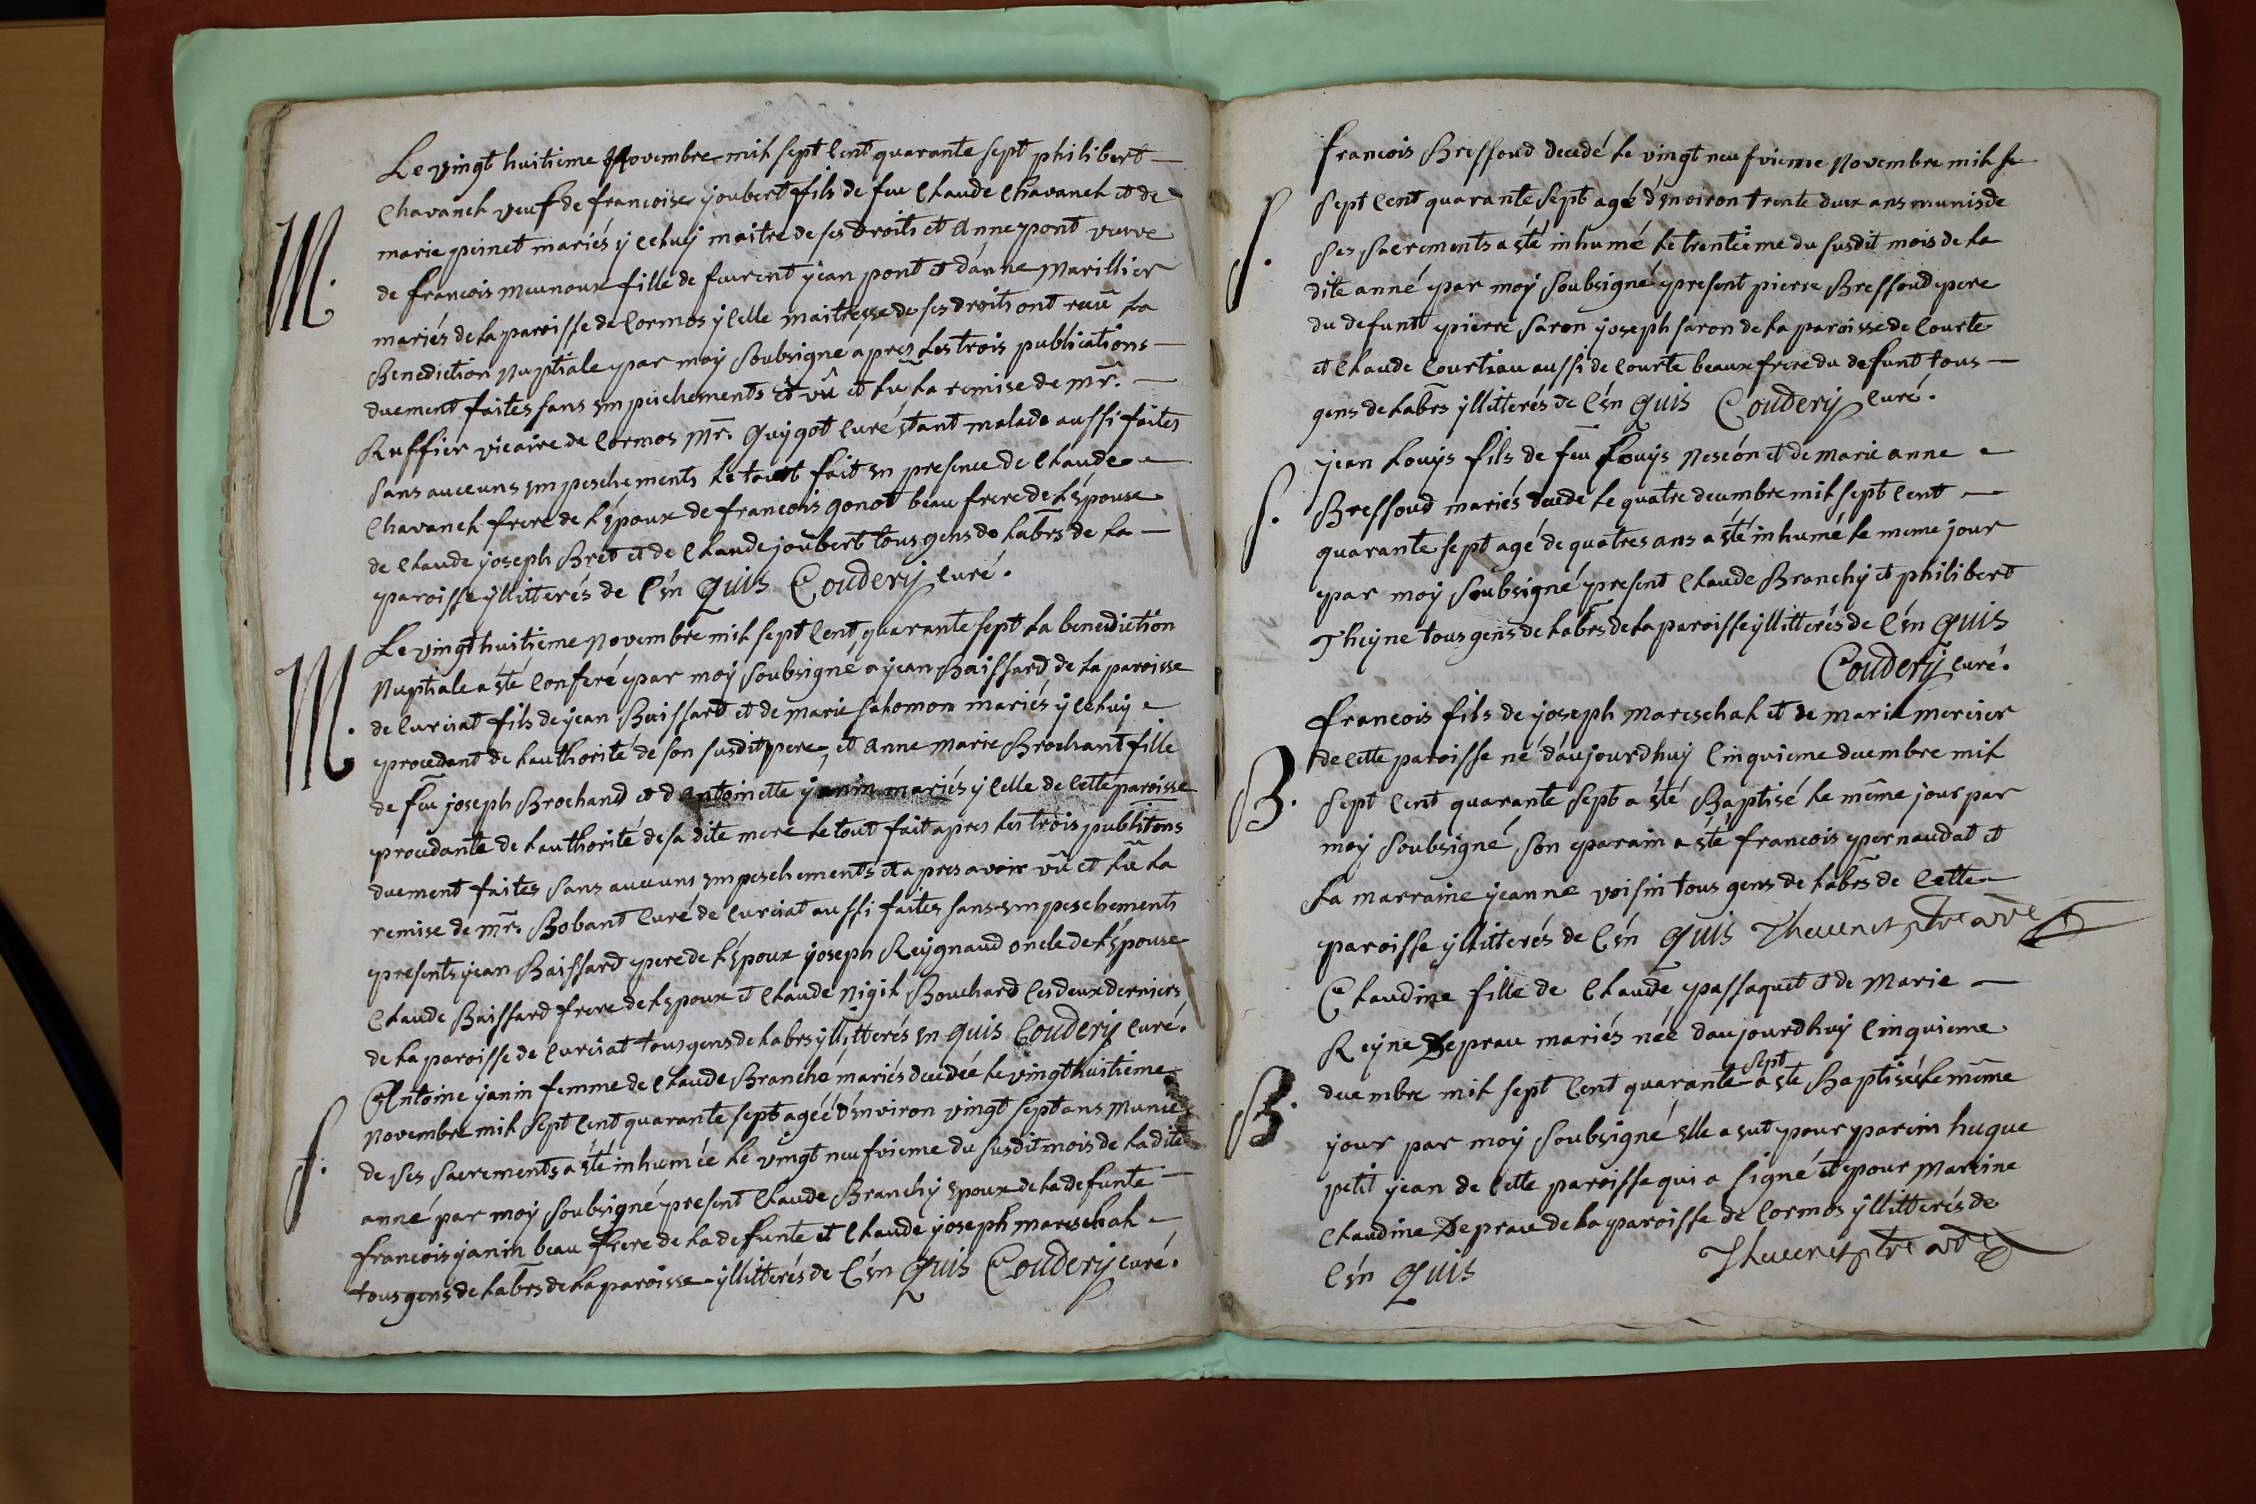 Le vingt huitieme Novembre mil sept cent quarante sept philibert
M. Chavanel veuf de francoise joubert fils de feu Claude Chavanel et de
marie peinet mariés yceluy maitre de ses droits et Anne pont veuve
de francois meunoux fille de feurent jean pont et d'anne Marillier
mariés de la paroisse de Cormos ycelle maitresse de ses droits ont recû la
Benediction Nuptiale par moy Soubsigné apres les trois publications
duement faites sans empeichements et vû et lû la remise de mr.
Ruffier vicaire de Cormos mr. Guygot Curé êtant malade aussi faites
sans auccuns empeschements le tout fait en presence de Claude
Chavanel frere de l'époux de francois gonot beau frere de l'épouse
de Claude joseph Bret et de Claude joubert tous gens de labrs de la
paroisse yllitterés de C'en Quis Coudery curé.
Le vingt huitieme Novembre mil sept cent quarante sept la benediction
M. Nuptiale a été Conferé par moy Soubsigné a jean Baissard de la paroisse
de Curciat fils de jean Baissard et de marie salomon mariés yceluy
procedant de l'authorité de son susdit pere, et Anne marie Brochant fille
de feu joseph Brochand et d'antoinette yanin mariés ycelle de cette paroisse
procedante de l'authorité de sa dite mere le tout fait apres les trois publitons
duement faites sans auccuns empeschements et apres avoir vû et lû la
remise de mr. Bobant Curé de Curciat aussi faites sans empeschements
presents jean Baissard pere de l'époux joseph Reygnaud oncle de l'épouse
Claude Baissard frere de l'époux et Claude nigil Bouchard ces deux derniers
de la paroisse de Curciat tous gens de labrs yllitterés en quis Coudery curé.
Antoine yanin femme de Claude Branché mariés decedée le vingt huitieme
S. Novembre mil sept cent quarante sept agéé d'environ vingt sept ans Munie
de ses sacrements a été inhumée le vingt neufvieme du susdit mois de la dite
anné par moy soubsigné present Claude Branchy époux de la defunte
francois yanin beau frere de la defunte et Claude joseph mareschal
tous gens de labrs de la paroisse yllitterés de C'en Quis Coudery curé.
francois Bressoud decedé le vingt neufvieme Novembre mil se
S. sept cent quarante sept agé d'environ trente deux ans munis de
ses sacrements a été inhumé le trentieme du susdit mois de la
dite anné par moy soubsigné present pierre Bressoud pere
du defunt pierre saron joseph saron de la paroisse de Courte
et Claude Courtiau aussi de Courte beaux frere du defunt tous
gens de labrs yllitterés de C'en Quis Coudery curé.
jean Louys fils de feu Louys Nescón et de marie anne
S. Bressoud mariés decedé le quatre decembre mil sept cent
quarante sept agé de quatres ans a été inhumé le meme jour
par moy soubsigné present Claude Branchy et philibert
Theyne tous gens de labrs de la paroisse yllitterés de C'en Quis
Coudery curé.
francois fils de joseph mareschal et de marie mercier
B. de cette paroisse né d'aujourdhuy Cinquieme decembre mil
sept cent quarante sept a été Baptisé le même jour par
moy soubsigné, son parain a été francois pernaudat et
la marraine jeanne voisin tous gens de labrs de cette
paroisse yllitterés de C'en Quis
Claudine fille de Claude passaquet et de Marie
Reyne Deprau mariés née daujourdhuy Cinquieme
B. decembre mil sept cent quarante sept a été Baptisée le même
jour par moy soubsigné elle a eut pour parein hugue
petit jean de cette paroisse qui a signé et pour Marine
Claudine Deprau de la paroisse de Cormos yllitterés de
C'en Quis